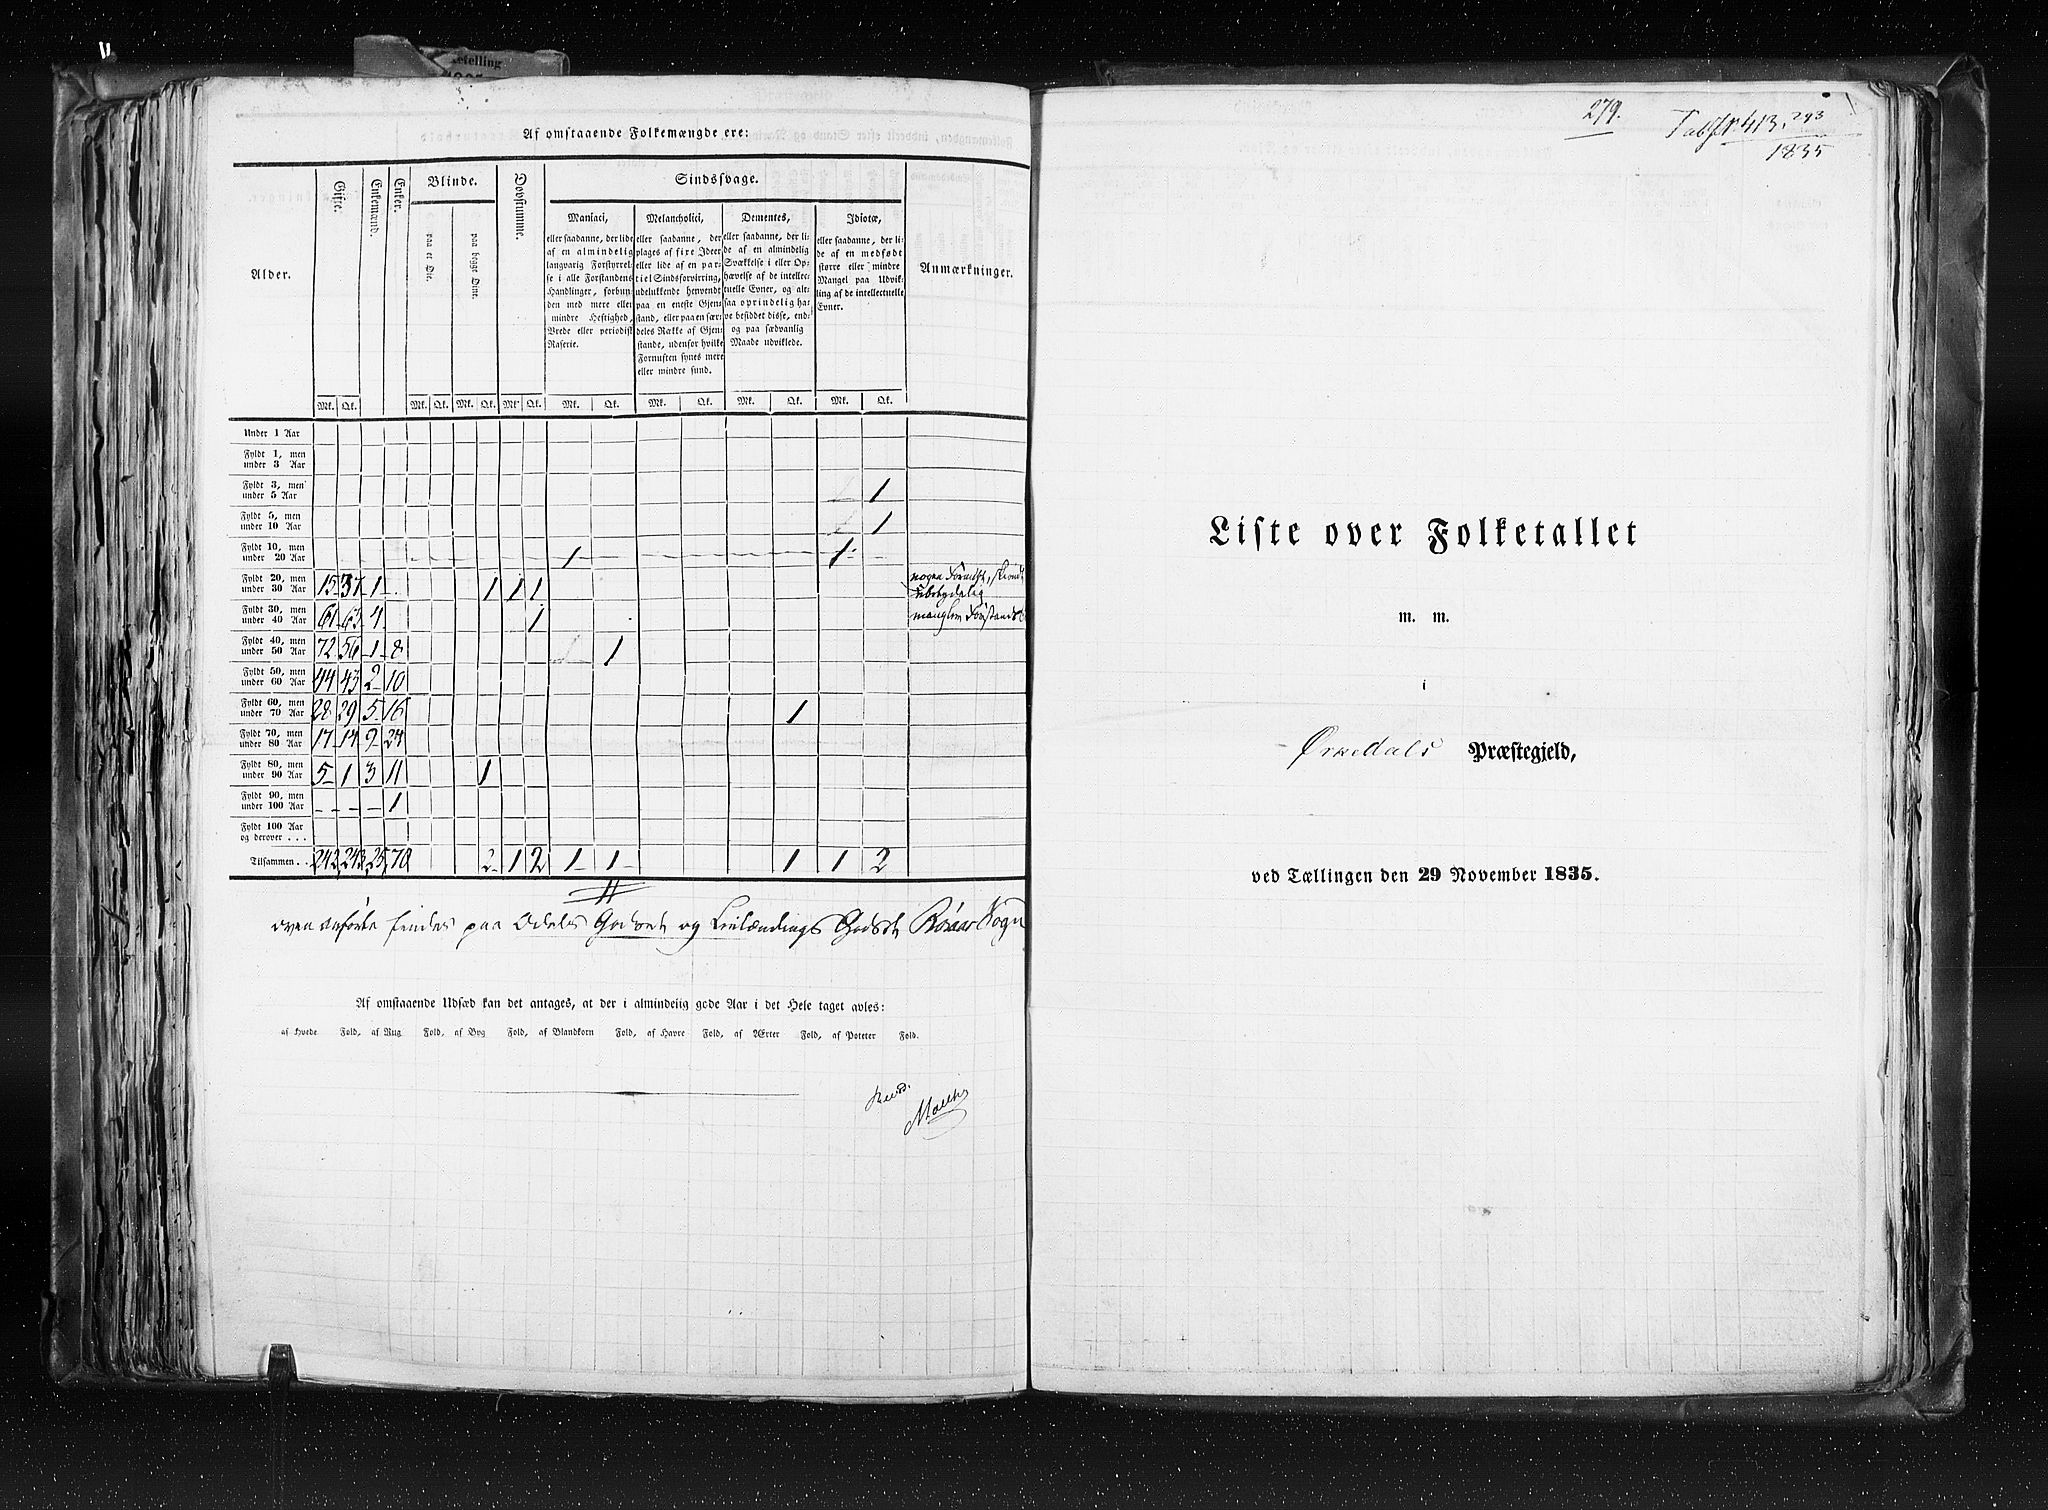 ketelling
Af omstaaende Folkemængde ere:
Alder.
Gifte.
Enkemænd.
Enker.
Blinde.
paa et Øie.
paa begge Øine.
Døvstumme.
Sindssvage.
Maniaci,
eller saadanne, der lide
af en almindelig
langvarig Forstyrrel-
se i alle Forstandens
Handlinger, forbun-
den med mere eller
mindre Heftighed,
Vrede eller periodisk
Raserie.
Melancholici,
eller saadanne, der
plages af fixe Ideer
eller lide af en par-
tiel Sindsforvirring,
udelukkende henvendt
paa en eneste Gjen-
stand, eller paa en sær-
deles Række af Gjen-
stande, udenfor hvilke
Fornuften synes mere
eller mindre sund.
Dementes,
eller saadanne, der li-
de af en almindelig
Svækkelse i eller Op-
hævelse af de intellec-
tuelle Evner, og alt-
saa oprindelig ha-
ve besiddet disse, end-
og paa sædvanlig
Maade udviklede.
Idiotæ,
eller saadanne, der li-
de af en medfødt
større eller mindre
Mangel paa Udvik-
ling af de intellectuelle
Evner.
Anmærkninger.
Mk. Qk. Mk. Qk. Mk. Qk. Mk. Qk. Mk. Qk. Mk. Qk. Mk. Qk. Mk. Qk.
Under 1 Aar
Fyldt 1, men
under 3 Aar
Fyldt 3, men
under 5 Aar 1
Fyldt 5, men
under 10 Aar 1
Fyldt 10, men
under 20 Aar 1 1
Fyldt 20, men
under 30 Aar 15 37 1 1 1 1
Fyldt 30, men
under 40 Aar 61 63 4 1
Fyldt 40, men
under 50 Aar 72 56 1 8 1
Fyldt 50, men
under 60 Aar 44 43 2 10
Fyldt 60, men
under 70 Aar 28 29 5 16 1
Fyldt 70, men
under 80 Aar 17 14 9 24
Fyldt 80, men
under 90 Aar 5 1 3 11 1
Fyldt 90, men
under 100 Aar 1
Fyldt 100 Aar
og derover . . .
Tilsammen . . 242 243 25 70 2 1 2 1 1 1 1 2
ovenanførte findes paa Odels Godset og Leilændings Godset Sogn
Af omstaaende Udsæd kan det antages, at der i almindelig gode Aar i det Hele taget avles:
af Hvede Fold, af Rug Fold, af Byg Fold, af Blandkorn Fold, af Havre Fold, af Ærter Fold, af Poteter Fold.
279.
293
1835
Liste over Folketallet
m. m.
i
Ørkedals Præstegjeld,
ved Tællingen den 29 November 1835.